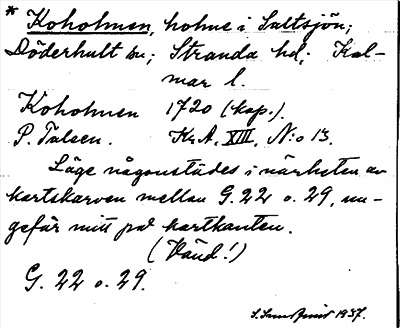 * Koholmen, holme i Saltsjön;
Döderhult sn; Stranda hd; Kal-
mar l.
Koholmen 1720 (kop.).
P. Talsen. Kr.A. XIII, N:o 13.
Läge någonstädes i närheten av
kartskarven mellan G. 22 o. 29, un-
gefär mitt på kartkanten.
(Vänd!)
G. 22 o. 29.
1937.